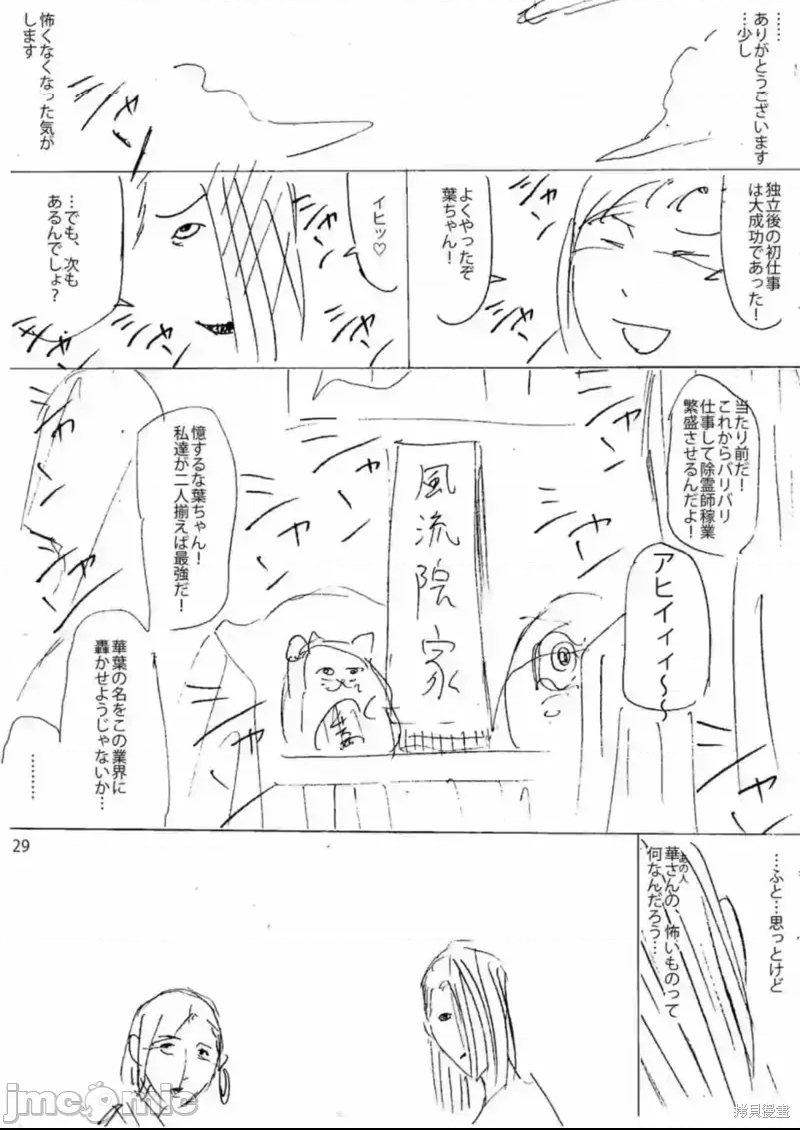 ……
ありがとうございます
…少し
怖くなくなった気が
します
独立後の初仕事
は大成功であった！
よくやったぞ
葉ちゃん！
イヒッ♡
…でも、次も
あるんでしょ？
当たり前だ！
これからバリバリ
仕事して除霊師稼業
繁盛させるんだよ！
アヒイィィ～～
風流院家
憶するな葉ちゃん！
私達が二人揃えば最強だ！
華葉の名をこの業界に
轟かせようじゃないか…
………
…ふと…思っとけど
華さんの、怖いものって
あの人
何なんだろう…
29
jmcomic
拷貝漫畫